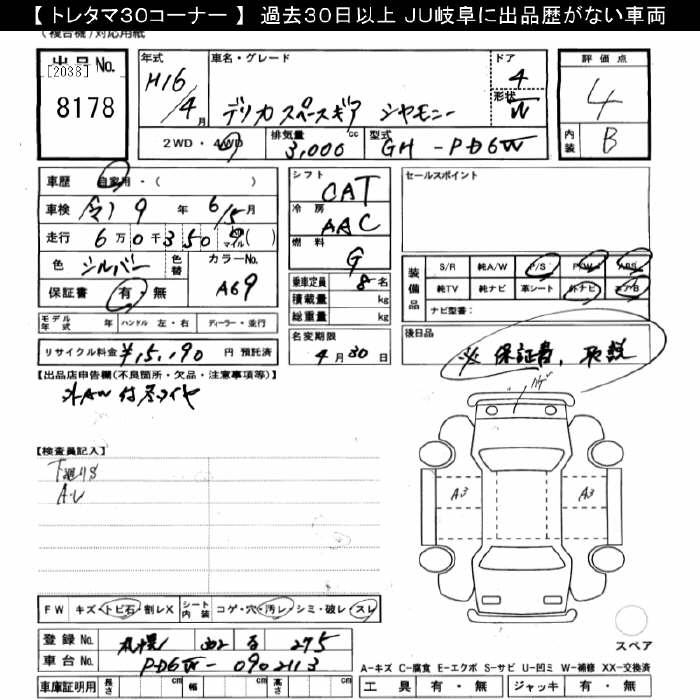 【 トレタマ30コーナー 】 過去30日以上 JU岐阜に出品歴がない車両
(複合機)対応用紙
出品No.
[2038]
8178
年式
H16/4月
車名・グレード
デリカ スペースギア シャモニー
ドア
4
形状
W
評価点
4
内装
B
2WD・4WD
排気量
3,000cc
型式
GH-PD6W
車歴
自家用・( )
車検
令) 9年 6/5月
走行
6万0千350 km マイル( )
色
シルバー
色替
カラーNo.
A69
保証書
有・無
モデル年式 年
ハンドル 左・右
ディーラー・並行
リサイクル料金 ¥15,190 円 預託済
シフト
CAT
冷房
AAC
燃料
G
乗車定員 8名
積載量 kg
総重量 kg
名変期限
4月30日
セールスポイント
装備品
S/R
純A/W
P/S
P/W
ABS
純TV
純ナビ
革シート
外ナビ
エアB
ナビ型番:
後日品
保証書、取説
【出品店申告欄(不良箇所・欠品・注意事項等)】
外AW
【検査員記入】
下廻りS
A3
A3
FW
キズ・トビ石・割レX
シート内装
コゲ・穴・汚レ・シミ・破レ・スレ
スペア
登録No.
札幌 302 275
車台No.
PD6W-0902113
A-キズ C-腐食 E-エクボ S-サビ U-凹ミ W-補修 XX-交換済
車庫証明用
長さ cm
幅 cm
高さ cm
工具 有・無
ジャッキ 有・無